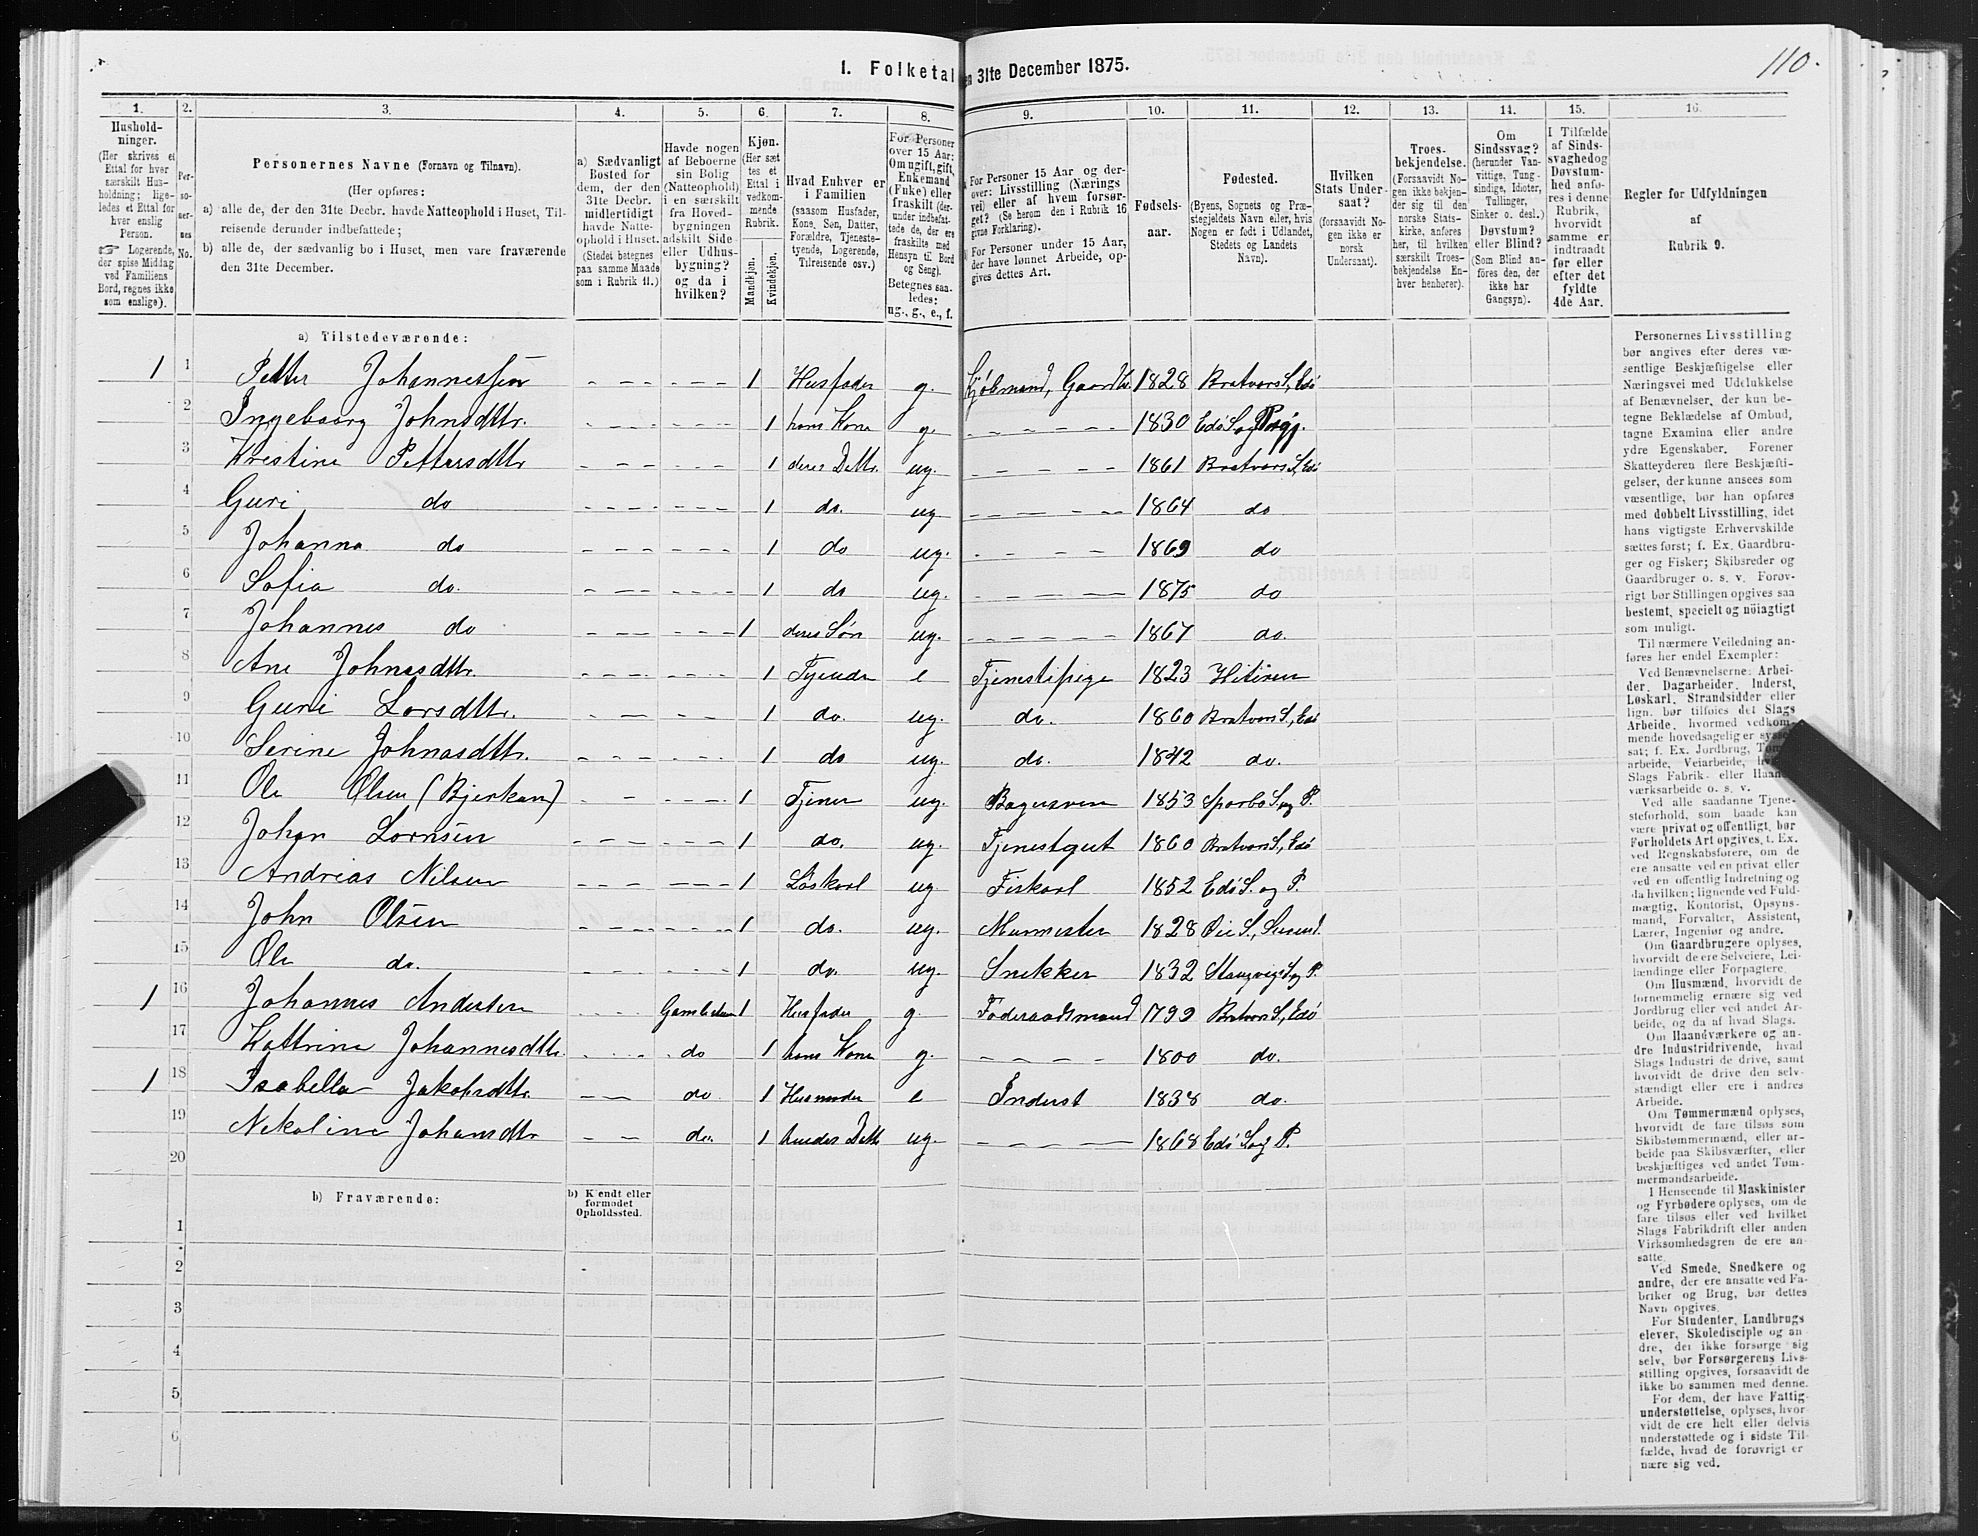 1. Folketal
en 31te December 1875.
110.
1. 2. 3. 4. 5. 6. 7. 8. 9. 10. 11. 12. 13. 14. 15. 16.
Hushold-
ninger.
(Her skrives et
Ettal for hver
særskilt Hus-
holdning; lige-
ledes et Ettal for
hver enslig
Person.
☞ Logerende,
der spise Middag
ved Familiens
Bord, regnes ikke
som enslige).
Per-
so-
ner-
nes
No.
Personernes Navne (Fornavn og Tilnavn).
(Her opføres:
a) alle de, der den 31te Decbr. havde Natteophold i Huset, Til-
reisende derunder indbefattede;
b) alle de, der sædvanlig bo i Huset, men vare fraværende
den 31te December.
a) Sædvanligt
Bosted for
dem, der den
31te Decbr.
midlertidigt
havde Natte-
ophold i Huset.
(Stedet betegnes
paa samme Maade
som i Rubrik 11.)
Havde nogen
af Beboerne
sin Bolig
(Natteophold)
i en særskilt
fra Hoved-
bygningen
adskilt Side-
eller Udhus-
bygning?
og da i
hvilken?
Kjøn.
(Her sæt
tes et
Ettal i
vedkom-
mende
Rubrik.
Mandkjøn.
Kvindekjøn.
Hvad Enhver er
i Familien
(saasom Husfader,
Kone, Søn, Datter,
Forældre, Tjeneste-
tyende, Logerende,
Tilreisende osv.)
For Personer
over 15 Aar:
Om ugift, gift,
Enkemand
(Enke) eller
fraskilt (der-
under indbefat-
tede de, der ere
fraskilte med
Hensyn til Bord
og Seng).
Betegnes saa-
ledes:
ug., g., e., f.
For Personer 15 Aar og der-
over: Livsstilling (Nærings
vei) eller af hvem forsør-
get? (Se herom den i Rubrik 16
givne Forklaring).
For Personer under 15 Aar,
der have lønnet Arbeide, op-
gives dettes Art.
Fødsels-
aar.
Fødested.
(Byens, Sognets og Præ-
stegjeldets Navn eller, hvis
Nogen er født i Udlandet,
Stedets og Landets
Navn).
Hvilken
Stats Under-
saat?
(forsaavidt No-
gen ikke er
norsk
Undersaat).
Troes-
bekjendelse.
(Forsaavidt No-
gen ikke bekjen-
der sig til den
norske Stats-
kirke, anføres
her, til hvilken
særskilt Troes-
bekjendelse En-
hver henhører).
Om
Sindssvag?
(herunder Van-
vittige, Tung-
sindige, Idioter,
Tullinger,
Sinker o. desl.)
Døvstum?
eller Blind?
(Som Blind an-
føres den, der
ikke har
Gangsyn).
I Tilfælde
af Sinds-
svaghed og
Døvstum-
hed anfø-
res i denne
Rubrik,
hvorvidt
samme er
indtraadt
før eller
efter det
fyldte
4de Aar.
Regler for Udfyldningen
af
Rubrik 9.
a) Tilstedeværende:
1 1 Petter Johannessen 1 Husfader g. Kjøbmand, Gaardbr. 1828 Bratvær S, Edö
2 Ingeborg Johnsdttr. 1 hans Kone g. 1830 Edö S og Prgj.
3 Kristine Pettersdttr 1 deres Dattr. ug. 1861 Bratvær S, Edö
4 Guri do 1 do. ug 1864 do
5 Johanna do 1 do ug. 1869 do
6 Sofia do. 1 do ug. 1875 do
7 Johannes do 1 deres Søn ug. 1867 do.
8 Ane Johnasdttr. 1 Tjende e Tjenestepige 1823 Hitteren
9 Guri Larsdttr. 1 do. ug. do. 1860 Bratvær S, Edö
10 Serine Johnasdttr. 1 do ug. do. 1842 do.
11 Ole Olsen (Bjerkan) 1 Tjener ug. Bagersven 1853 Sparbo S. og P.
12 Johan Larnsen 1 do. ug. Tjenestgut 1860 Bratvær S, Edö
13 Andrias Nilsen 1 Löskarl ug Fiskarl 1852 Edö S. og P.
14 John Olsen 1 do. ug. Murmester 1828 Öie S.,
15 Ole do. 1 do. ug. Snekker 1832 Stangvig S og P.
1 16 Johannes Andersen 1 Husfader g. Föderaadsmand 1799 Bratvær S, Edö
17 Kattrine Johannesdttr. do 1 hans Kone g. 1800 do.
1 18 Isabella Jakobsdttr. do 1 Husmoder e Inderst 1838 do.
19 Nikoline Johansdttr do. 1 hendes Dattr ug. 1868 Edö S og P.
20
b) Fraværende:
b) Kjendt eller
formodet
Opholdssted.
1
2
3
4
5
6
Personernes Livsstilling
bør angives efter deres væ-
sentlige Beskjæftigelse eller
Næringsvei med Udelukkelse
af Benævnelser, der kun be-
tegne Beklædelse af Ombud,
tagne Examina eller andre
ydre Egenskaber. Forener
Skatteyderen flere Beskjæfti-
gelser, der kunne ansees som
væsentlige, bør han opføres
med dobbelt Livsstilling, idet
hans vigtigste Erhvervskilde
sættes først; f. Ex. Gaardbru-
ger og Fisker; Skibsreder og
Gaardbruger o. s. v. Forøv-
rigt bør Stillingen opgives saa
bestemt, specielt og nöiagtigt
som muligt.
Til nærmere Veiledning an-
føres her endel Exempler:
Ved Benævnelserne: Arbei-
der, Dagarbeider, Inderst,
Løskarl, Strandsidder eller
lign. bør tilføies det Slags
Arbeide, hvormed vedkom-
mende hovedsagelig er syssel
sat; f. Ex. Jordbrug, Tøm
arbeide, Veiarbeide,
Slags Fabrik- eller Haand
værksarbeide o. s. v.
Ved alle saadanne Tjene-
steforhold, som baade kan
være privat og offentligt, bør
Forholdets Art opgives, t. Ex.
ved Regnskabsførere, om de
ere ansatte ved en privat eller
ved en offentlig Indretning og
da hvilken; lignende ved Fuld-
mægtig, Kontorist, Opsyns-
mand, Forvalter, Assistent,
Lærer, Ingeniør og andre.
Om Gaardbrugere oplyses,
hvorvidt de ere Selveiere, Lei-
lændinge eller Forpagtere.
Om Husmænd, hvorvidt de
fornemmelig ernære sig ved
Jordbrug eller ved andet Ar-
beide, og da af hvad Slags.
Om Haandværkere og an-
dre Industridrivende, hvad
Slags Industri de drive, samt
hvorvidt de drive den selv-
stændigt eller ere i andres
Arbeide.
Om Tømmermænd oplyses,
hvorvidt de fare tilsøs som
Skibstømmermænd, eller ar-
beide paa Skibsværfter, eller
beskjæftiges ved andet Tøm-
mermandsarbeide.
I Henseende til Maskinister
og Fyrbødere oplyses, om de
fare tilsøs eller ved hvilket
Slags Fabrikdrift eller anden
Virksomhedsgren de ere an-
satte.
Ved Smede, Snedkere og
andre, der ere ansatte ved Fa-
briker og Brug, bør dettes
Navn opgives.
For Studenter, Landbrugs
elever, Skoledisciple og an-
dre, der ikke forsørge sig
selv, bør Forsørgerens Livs-
stilling opgives, forsaavidt de
ikke bo sammen med denne.
For dem, der have Fattig-
understøttelse, oplyses, hvor-
vidt de ere helt eller delvis
understøttede og i sidste Til-
fælde, hvad de forøvrigt er
nære sig ved.